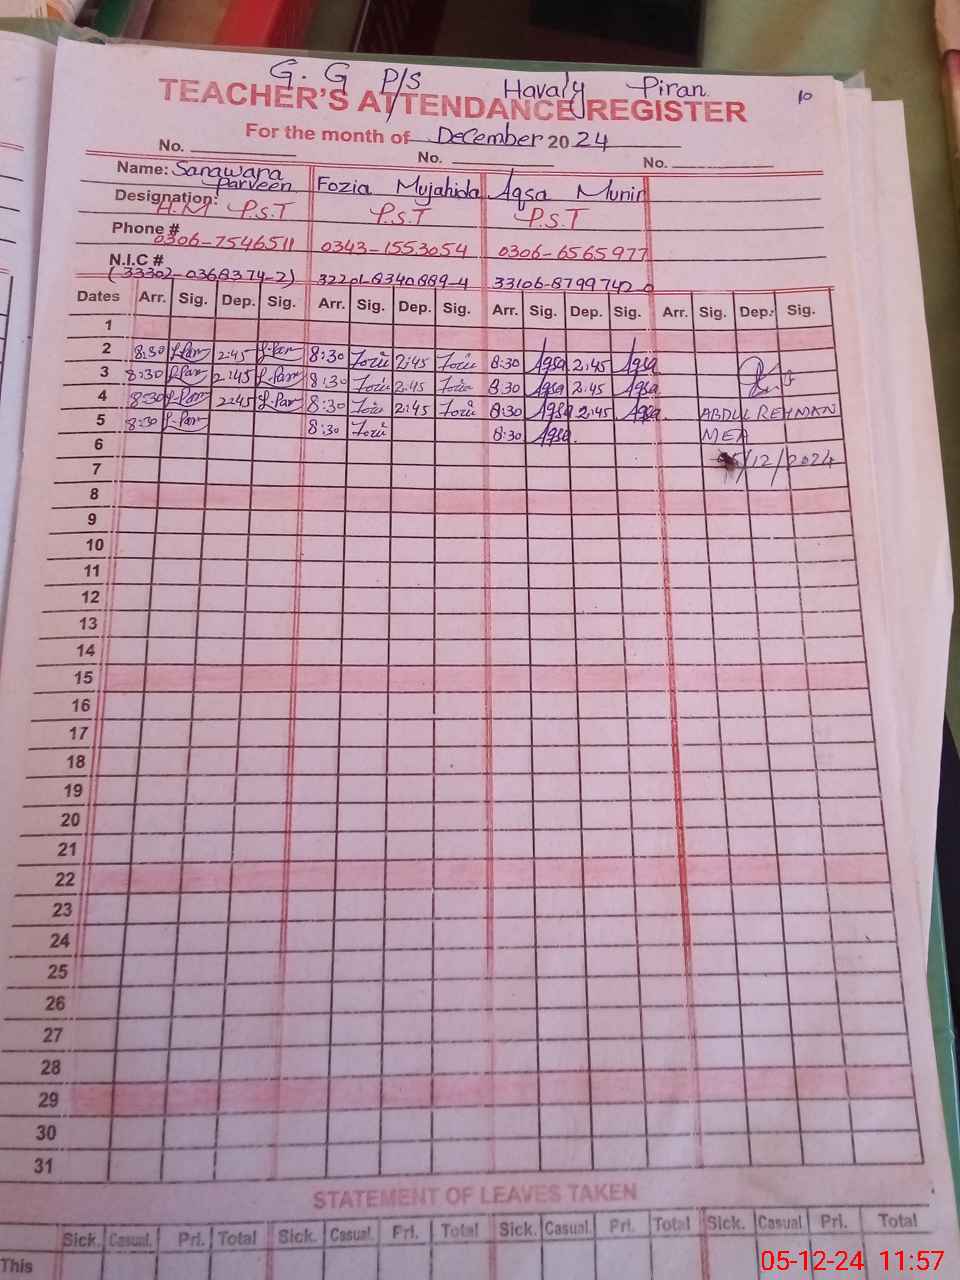 G. G P/S Havaly Piran 10
TEACHER'S ATTENDANCE REGISTER
For the month of December 2024
No. No. No.
Name: Sarawara Parveen Fozia Mujahida Aqsa Munir
Designation: H.M P.S.T P.S.T P.S.T
Phone # 0306-7546511 0343-1553054 0306-6565977
N.I.C # (33302-0368374-2) 32201-8340889-4 33106-8799742-0
Dates Arr. Sig. Dep. Sig. Arr. Sig. Dep. Sig. Arr. Sig. Dep. Sig. Arr. Sig. Dep. Sig.
1
2 8:30 2:45 8:30 Fozia 2:45 Fozia 8:30 Aqsa 2:45 Aqsa
3 8:30 2:45 8:30 Fozia 2:45 Fozia 8:30 Aqsa 2:45 Aqsa
4 8:30 2:45 8:30 Fozia 2:45 Fozia 8:30 Aqsa 2:45 Aqsa ABDUL REHMAN
5 8:30 8:30 Fozia 8:30 Aqsa MEA
6 05/12/2024
7
8
9
10
11
12
13
14
15
16
17
18
19
20
21
22
23
24
25
26
27
28
29
30
31
STATEMENT OF LEAVES TAKEN
Sick. Casual. Pri. Total Sick. Casual. Pri. Total Sick. Casual. Pri. Total Sick. Casual Pri. Total
This
05-12-24 11:57